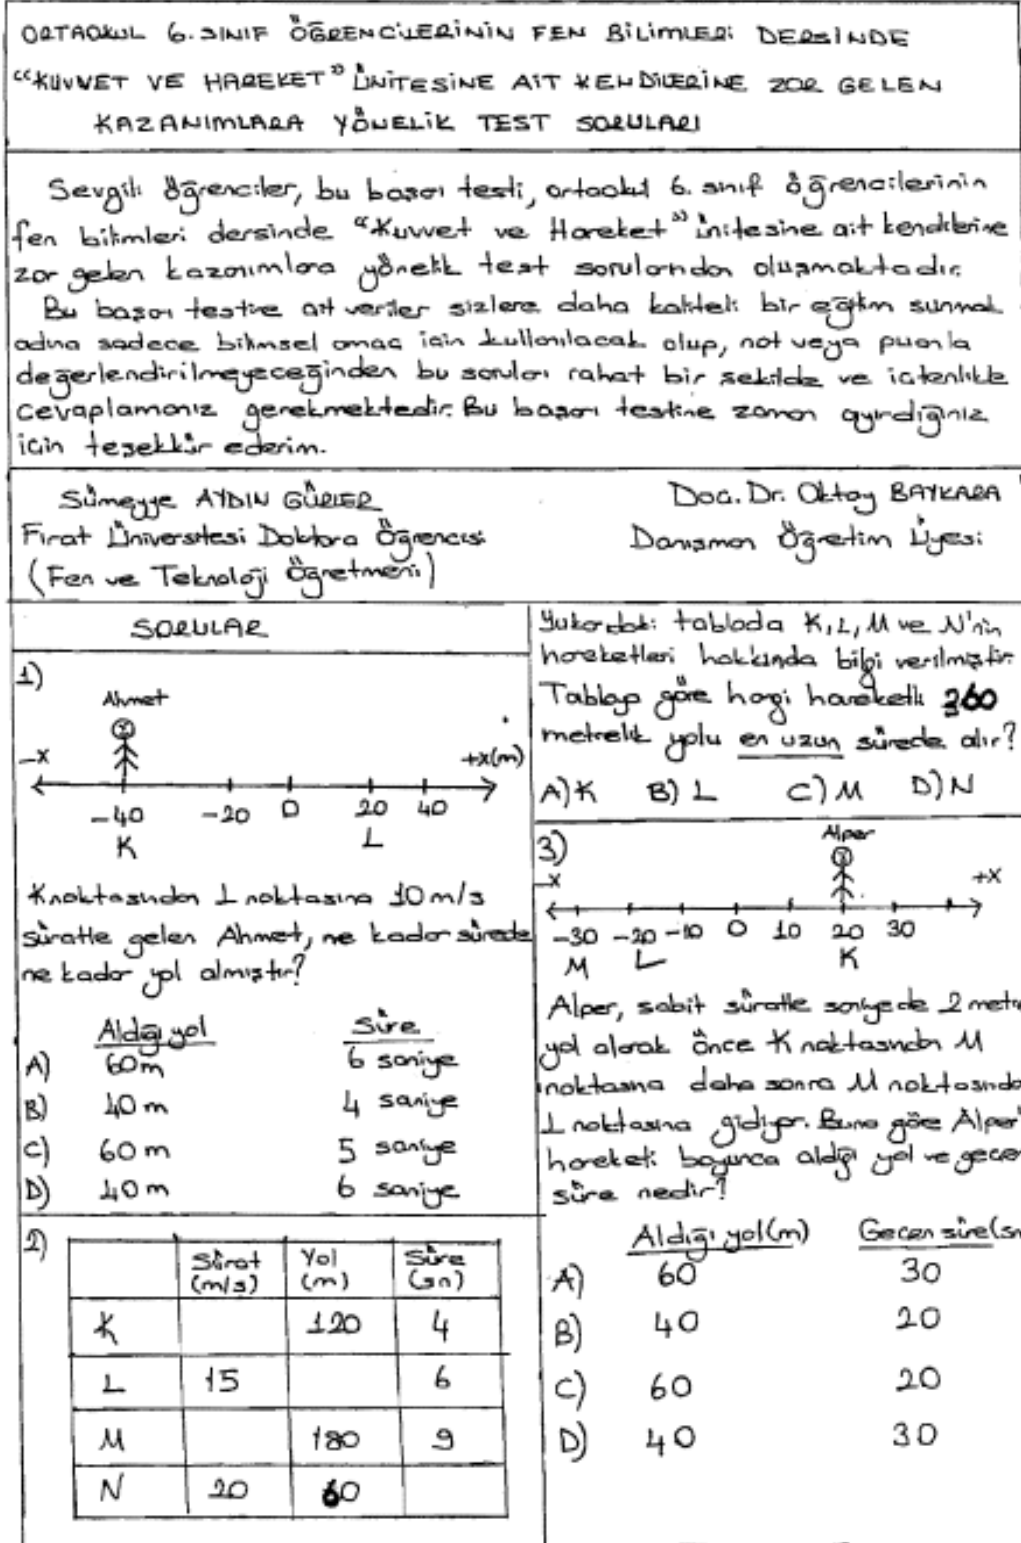 ORTAOKUL 6. SINIF ÖĞRENCİLERİNİN FEN BİLİMLERİ DERSİNDE
"KUVVET VE HAREKET" ÜNİTESİNE AİT KENDİLERİNE ZOR GELEN
KAZANIMLARA YÖNELİK TEST SORULARI
Sevgili öğrenciler, bu başarı testi, ortaokul 6. sınıf öğrencilerinin
fen bilimleri dersinde "Kuvvet ve Hareket" ünitesine ait kendilerine
zor gelen kazanımlara yönelik test sorularından oluşmaktadır.
Bu başarı testine ait veriler sizlere daha kaliteli bir eğitim sunmak
adına sadece bilimsel amaç için kullanılacak olup, not veya puanla
değerlendirilmeyeceğinden bu soruları rahat bir şekilde ve içtenlikle
cevaplamanız gerekmektedir. Bu başarı testine zaman ayırdığınız
için teşekkür ederim.
Sümeyye AYDIN GÜRLER
Fırat Üniversitesi Doktora Öğrencisi
(Fen ve Teknoloji Öğretmeni)
Doç. Dr. Oktay BAYKARA
Danışman Öğretim Üyesi
SORULAR
1)
Ahmet
-x +x(m)
-40 -20 0 20 40
K L
K noktasından L noktasına 10 m/s
süratle gelen Ahmet, ne kadar sürede
ne kadar yol almıştır?
Aldığı yol Süre
A) 60m 6 saniye
B) 40 m 4 saniye
C) 60 m 5 saniye
D) 40 m 6 saniye
2)
Sürat (m/s) Yol (m) Süre (sn)
K 120 4
L 15 6
M 180 9
N 20 60
Yukarıdaki tabloda K, L, M ve N'nin
hareketleri hakkında bilgi verilmiştir.
Tabloya göre hangi hareketli 360
metrelik yolu en uzun sürede alır?
A) K B) L C) M D) N
3)
Alper
-x +x
-30 -20 -10 0 10 20 30
M L K
Alper, sabit süratle saniyede 2 metre
yol alarak önce K noktasından M
noktasına daha sonra M noktasında
L noktasına gidiyor. Buna göre Alper'
hareketi boyunca aldığı yol ve geçen
süre nedir?
Aldığı yol(m) Geçen süre(sn
A) 60 30
B) 40 20
C) 60 20
D) 40 30